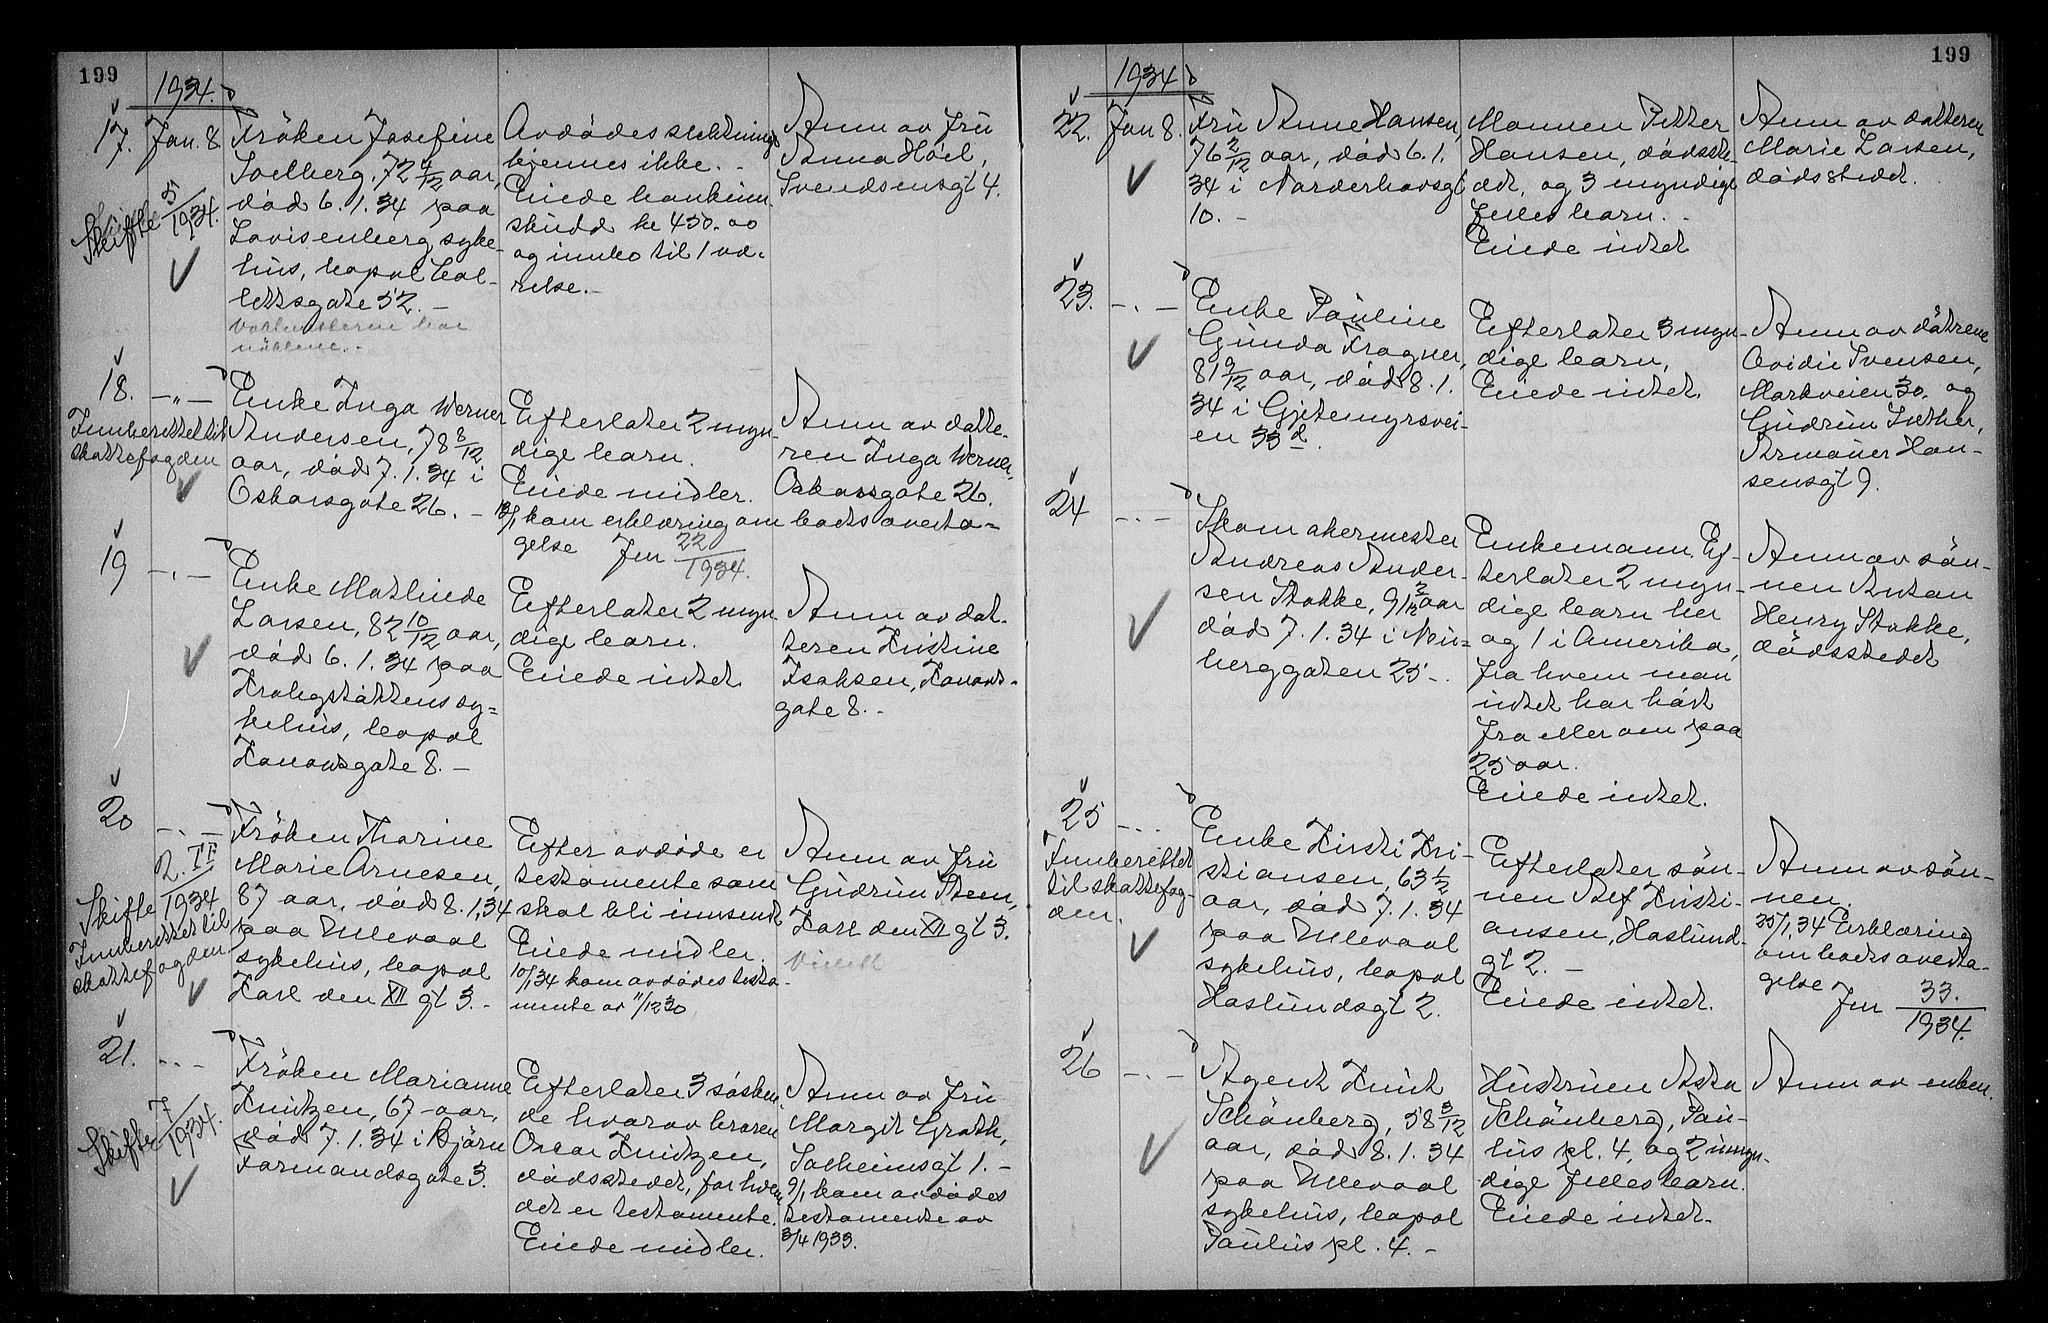 199
1934.
17. Jan. 8
Fröken Josefine
Solberg, 72 4/12 aar,
död 6. 1. 34 paa
Lovisenberg syke-
hus, bopæl Col-
lettsgate 52. –
nöklene. –
Skifte 5/1934.
Avdödes slektninger
kjennes ikke. –
Eiede bankinn-
skudd kr 450.00
og innbo til 1 væ-
relse. –
Anm av fru
Anna Höil,
Svendsensgt 4.
18. – " –
Innberettet til
skattefogden
Enke Inga Werner
Andersen, 78 8/12
aar, död 7. 1. 34 i
Oskarsgate 26. –
Efterlater 2 myn-
dige barn.
Eiede midler.
Anm av datte-
ren Inga Werner,
Oskarsgate 26.
kom erklæring om boets overta-
gelse Jnr 22/1934.
19 – " –
Enke Mathilde
Larsen, 82 10/12 aar,
död 6. 1. 34 paa
Krohgstöttens sy-
kehus, bopæl
Kanonsgate 8. –
Efterlater 2 myn-
dige barn.
Eiede intet
Anm av dat-
teren Kristine
Isaksen, Kanons-
gate 8. –
20 – " –
2. II/1934
Skifte
Innberettet til
skattefogden
Fröken Thorine
Marie Arnesen,
87 aar, död 8. 1. 34
paa Ullevaal
sykehus, bopæl
Karl den XII gt 3. –
Efter avdöde er
testamente som
skal bli innsendt
Eiede midler.
10/1 34 kom avdödes testa-
mente av 11/12 30
Anm av fru
Gudrun Stem,
Karl den XII gt 3.
21. – " –
Skifte 7/1934.
Fröken Marianne
Knutzen, 67 aar,
död 7. 1. 34 i Björn
Farmandsgate 3.
Efterlater 3 sösken-
de hvorav broren
Oscar Knutzen,
dödsstedet, for hvem
det er testamente.
Eiede midler.
Anm av Fru
Margit Groth,
Solheimsgt 1. –
9/1 kom avdödes
testamente av
3/4 1933.
199
1934
22. Jan 8.
Fru Anne Hansen,
76 2/12 aar, död 6. 1.
34 i Norderhovsgt
10. –
Mannen Petter
Hansen, dödsste-
det, og 3 myndige
felles barn. –
Eiede intet
Anm av datteren
Marie Larsen,
dödsstedet.
23. – " –
Enke Pauline
Gunda Fragner,
81 9/12 aar, död 8. 1.
34 i Gjetemyrsvei-
en 33 d.
Efterlater 3 myn-
dige barn,
Eiede intet.
Anm av dötrene
Ovidie Svensen,
Markveien 30. og
Gudrun Sæther,
Armauer Han-
sensgt 9.
24 – " –
Skomakermester
Andreas Ander-
sen Stokke, 91 3/12 aar
död 7. 1. 34 i Neu-
berggaten 25 –
Enkemann. Ef-
terlater 2 myn-
dige barn her
og 1 i Amerika,
fra hvem man
intet har hört
fra eller om paa
25 aar.
Eiede intet.
Anm av sön-
nen Anton
Henry Stokke,
dödsstedet
25 – " –
Innberettet
til skattefog-
den.
Enke Kirsti Kri-
stiansen, 63
aar, död 7. 1. 34
paa Ullevaal
sykehus, bopæl
Haslundsgt 2.
Efterlater sön-
nen Alf Kristi-
ansen, Haslund-
gt 2. –
Eiede intet.
Anm av sön-
nen.
25/1 34 Erklæring
om boets overta-
gelse
Jnr 33./1934.
26 – " –
Agent Knut
Schönberg, 58 3/12
aar, död 8. 1. 34
paa Ullevaal
sykehus, bopæl
Paulus pl. 4. –
Hustruen Asta
Schönberg, Pau-
lus pl. 4, og 2 myn-
dige felles barn.
Eiede intet.
Anm av enken.